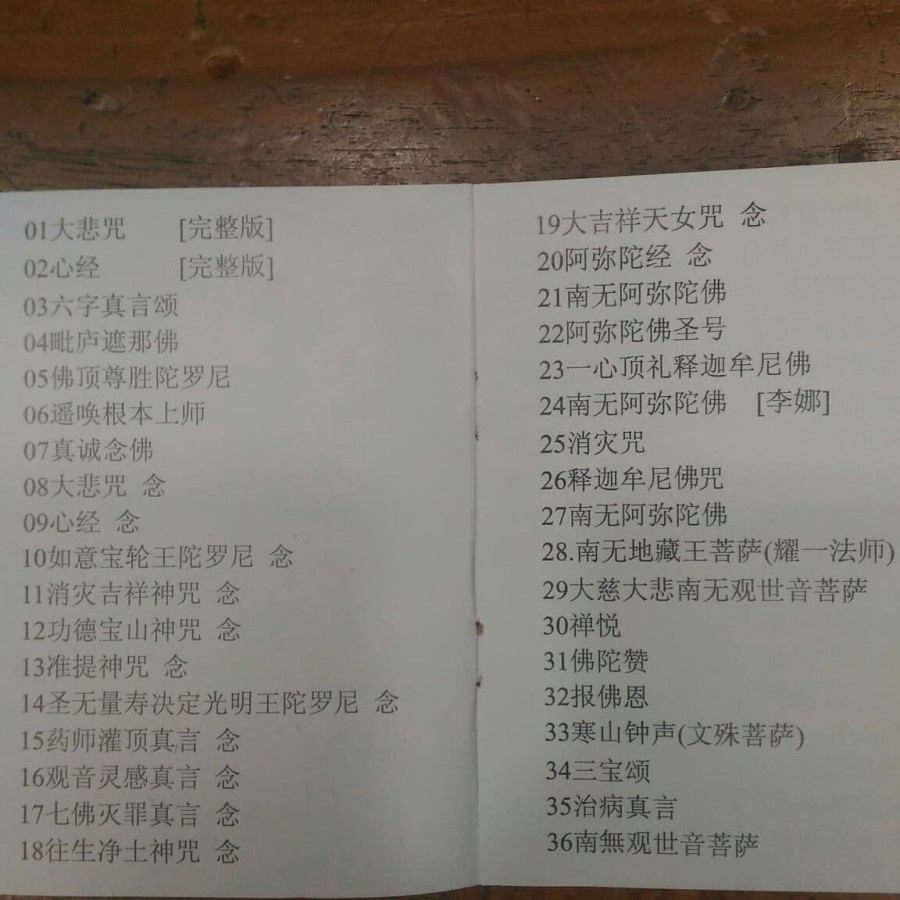 01大悲咒 [完整版]
02心经 [完整版]
03六字真言颂
04毗庐遮那佛
05佛顶尊胜陀罗尼
06遥唤根本上师
07真诚念佛
08大悲咒 念
09心经 念
10如意宝轮王陀罗尼 念
11消灾吉祥神咒 念
12功德宝山神咒 念
13准提神咒 念
14圣无量寿决定光明王陀罗尼 念
15药师灌顶真言 念
16观音灵感真言 念
17七佛灭罪真言 念
18往生净土神咒 念
19大吉祥天女咒 念
20阿弥陀经 念
21南无阿弥陀佛
22阿弥陀佛圣号
23一心顶礼释迦牟尼佛
24南无阿弥陀佛 [李娜]
25消灾咒
26释迦牟尼佛咒
27南无阿弥陀佛
28.南无地藏王菩萨(耀一法师)
29大慈大悲南无观世音菩萨
30禅悦
31佛陀赞
32报佛恩
33寒山钟声(文殊菩萨)
34三宝颂
35治病真言
36南無观世音菩萨